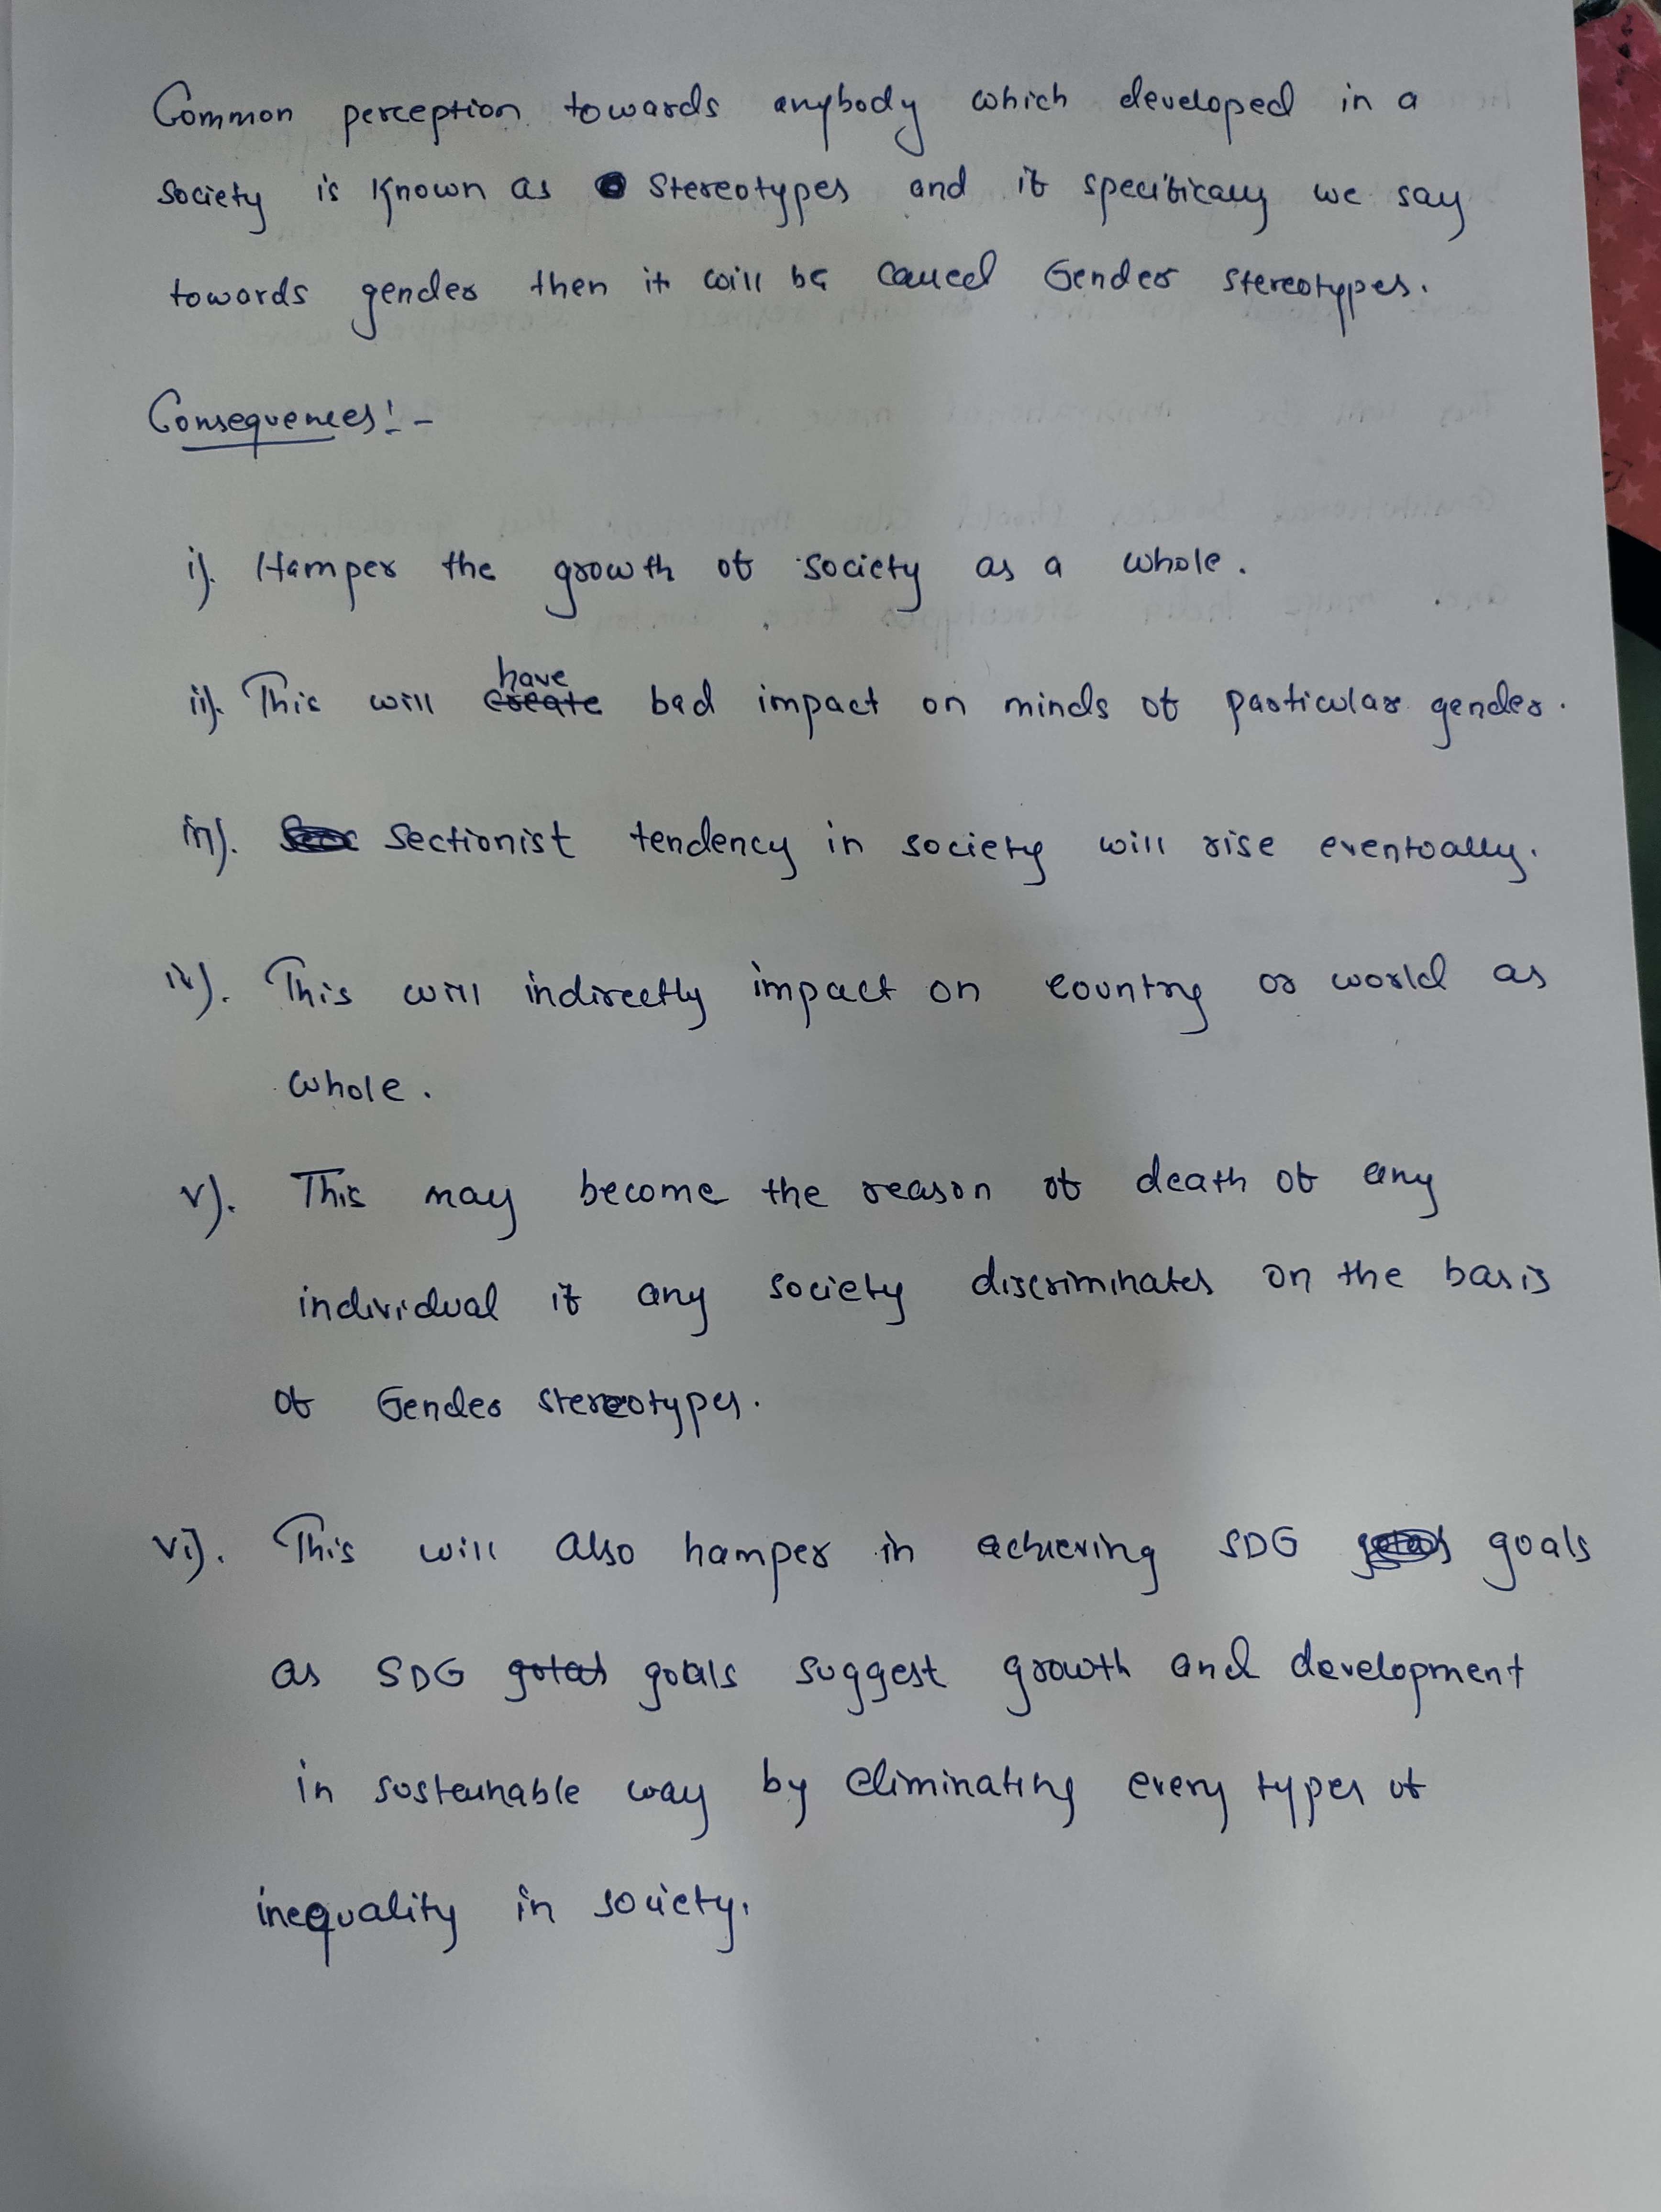 Common perception towards anybody which developed in a
society is known as stereotypes and if specifically we say
towards gender then it will be called Gender stereotypes.
Consequences:-
i). Hamper the growth of society as a whole.
have
ii). This will create bad impact on minds of particular gender.
iii). sectionist tendency in society will rise eventually.
iv). This will indirectly impact on country or world as
whole.
v). This may become the reason of death of any
individual if any society discriminates on the basis
of Gender stereotypes.
vi). This will also hamper in achieving SDG goals
as SDG goals suggest growth and development
in sustainable way by eliminating every types of
inequality in society.